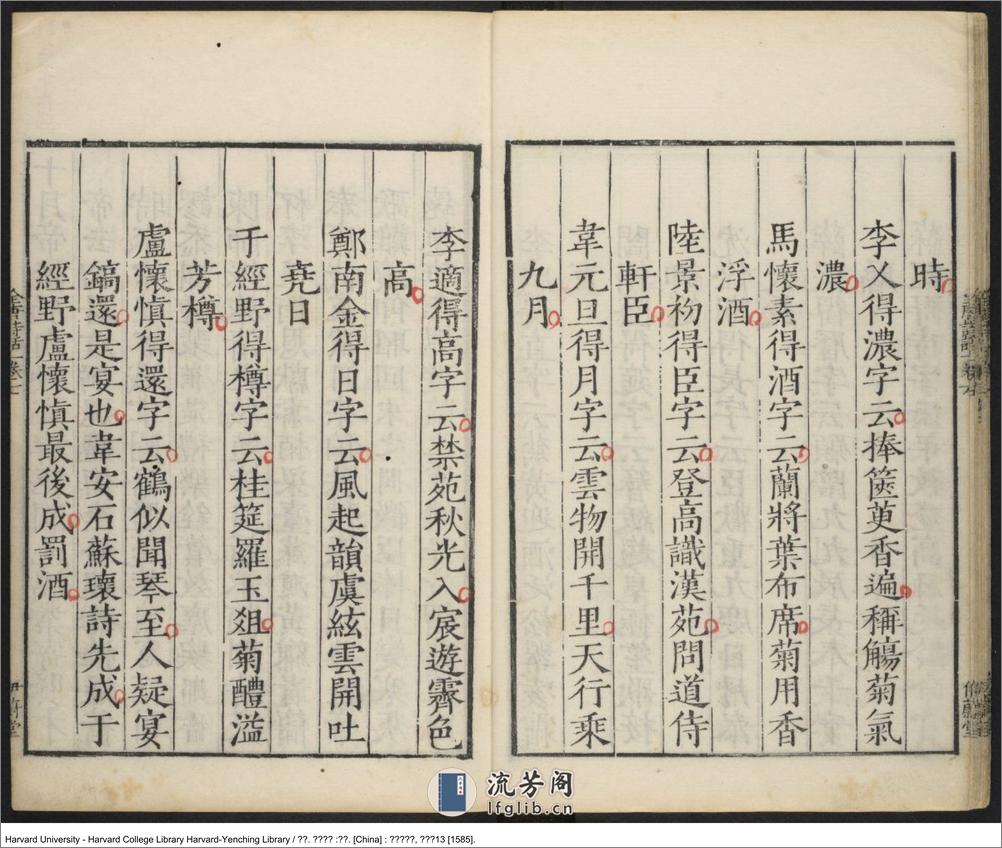 時
李乂得濃字云捧篋萸香遍稱觴菊氣
濃
馬懷素得酒字云蘭將葉布席菊用香
浮酒
陸景初得臣字云登高識漢苑問道侍
軒臣
韋元旦得月字云雲物開千里天行乘
九月
李適得高字云禁苑秋光入宸遊霽色
高
鄭南金得日字云風起韻虞絃雲開吐
堯日
于經野得樽字云桂筵羅玉俎菊醴溢
芳樽
盧懷慎得還字云鶴似聞琴至人疑宴
鎬還是宴也韋安石蘇瓌詩先成于
經野盧懷慎最後成罰酒
流芳阁
lfglib.cn
Harvard University - Harvard College Library Harvard-Yenching Library / ??. ???? :??. [China] : ?????, ???13 [1585].